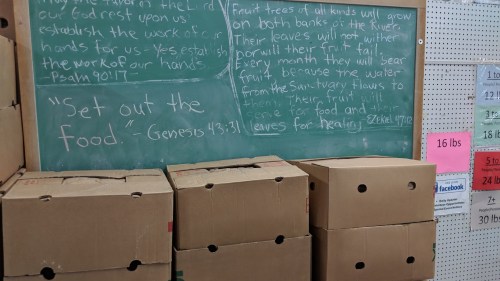 May the favor of the Lord
our God rest upon us;
establish the work of our
hands for us - Yes, establish
the work of our hands.
- Psalm 90:17 -
Fruit trees of all kinds will grow
on both banks of the River.
Their leaves will not wither
nor will their fruit fail.
Every month they will bear
fruit because the water
from the Sanctuary flows to
them. Their fruit will
serve for food and their
leaves for healing. Ezekiel 47:12
"Set out the
food." - Genesis 43:31
16 lbs
facebook
18 lb
24 lb
7+
30 lbs